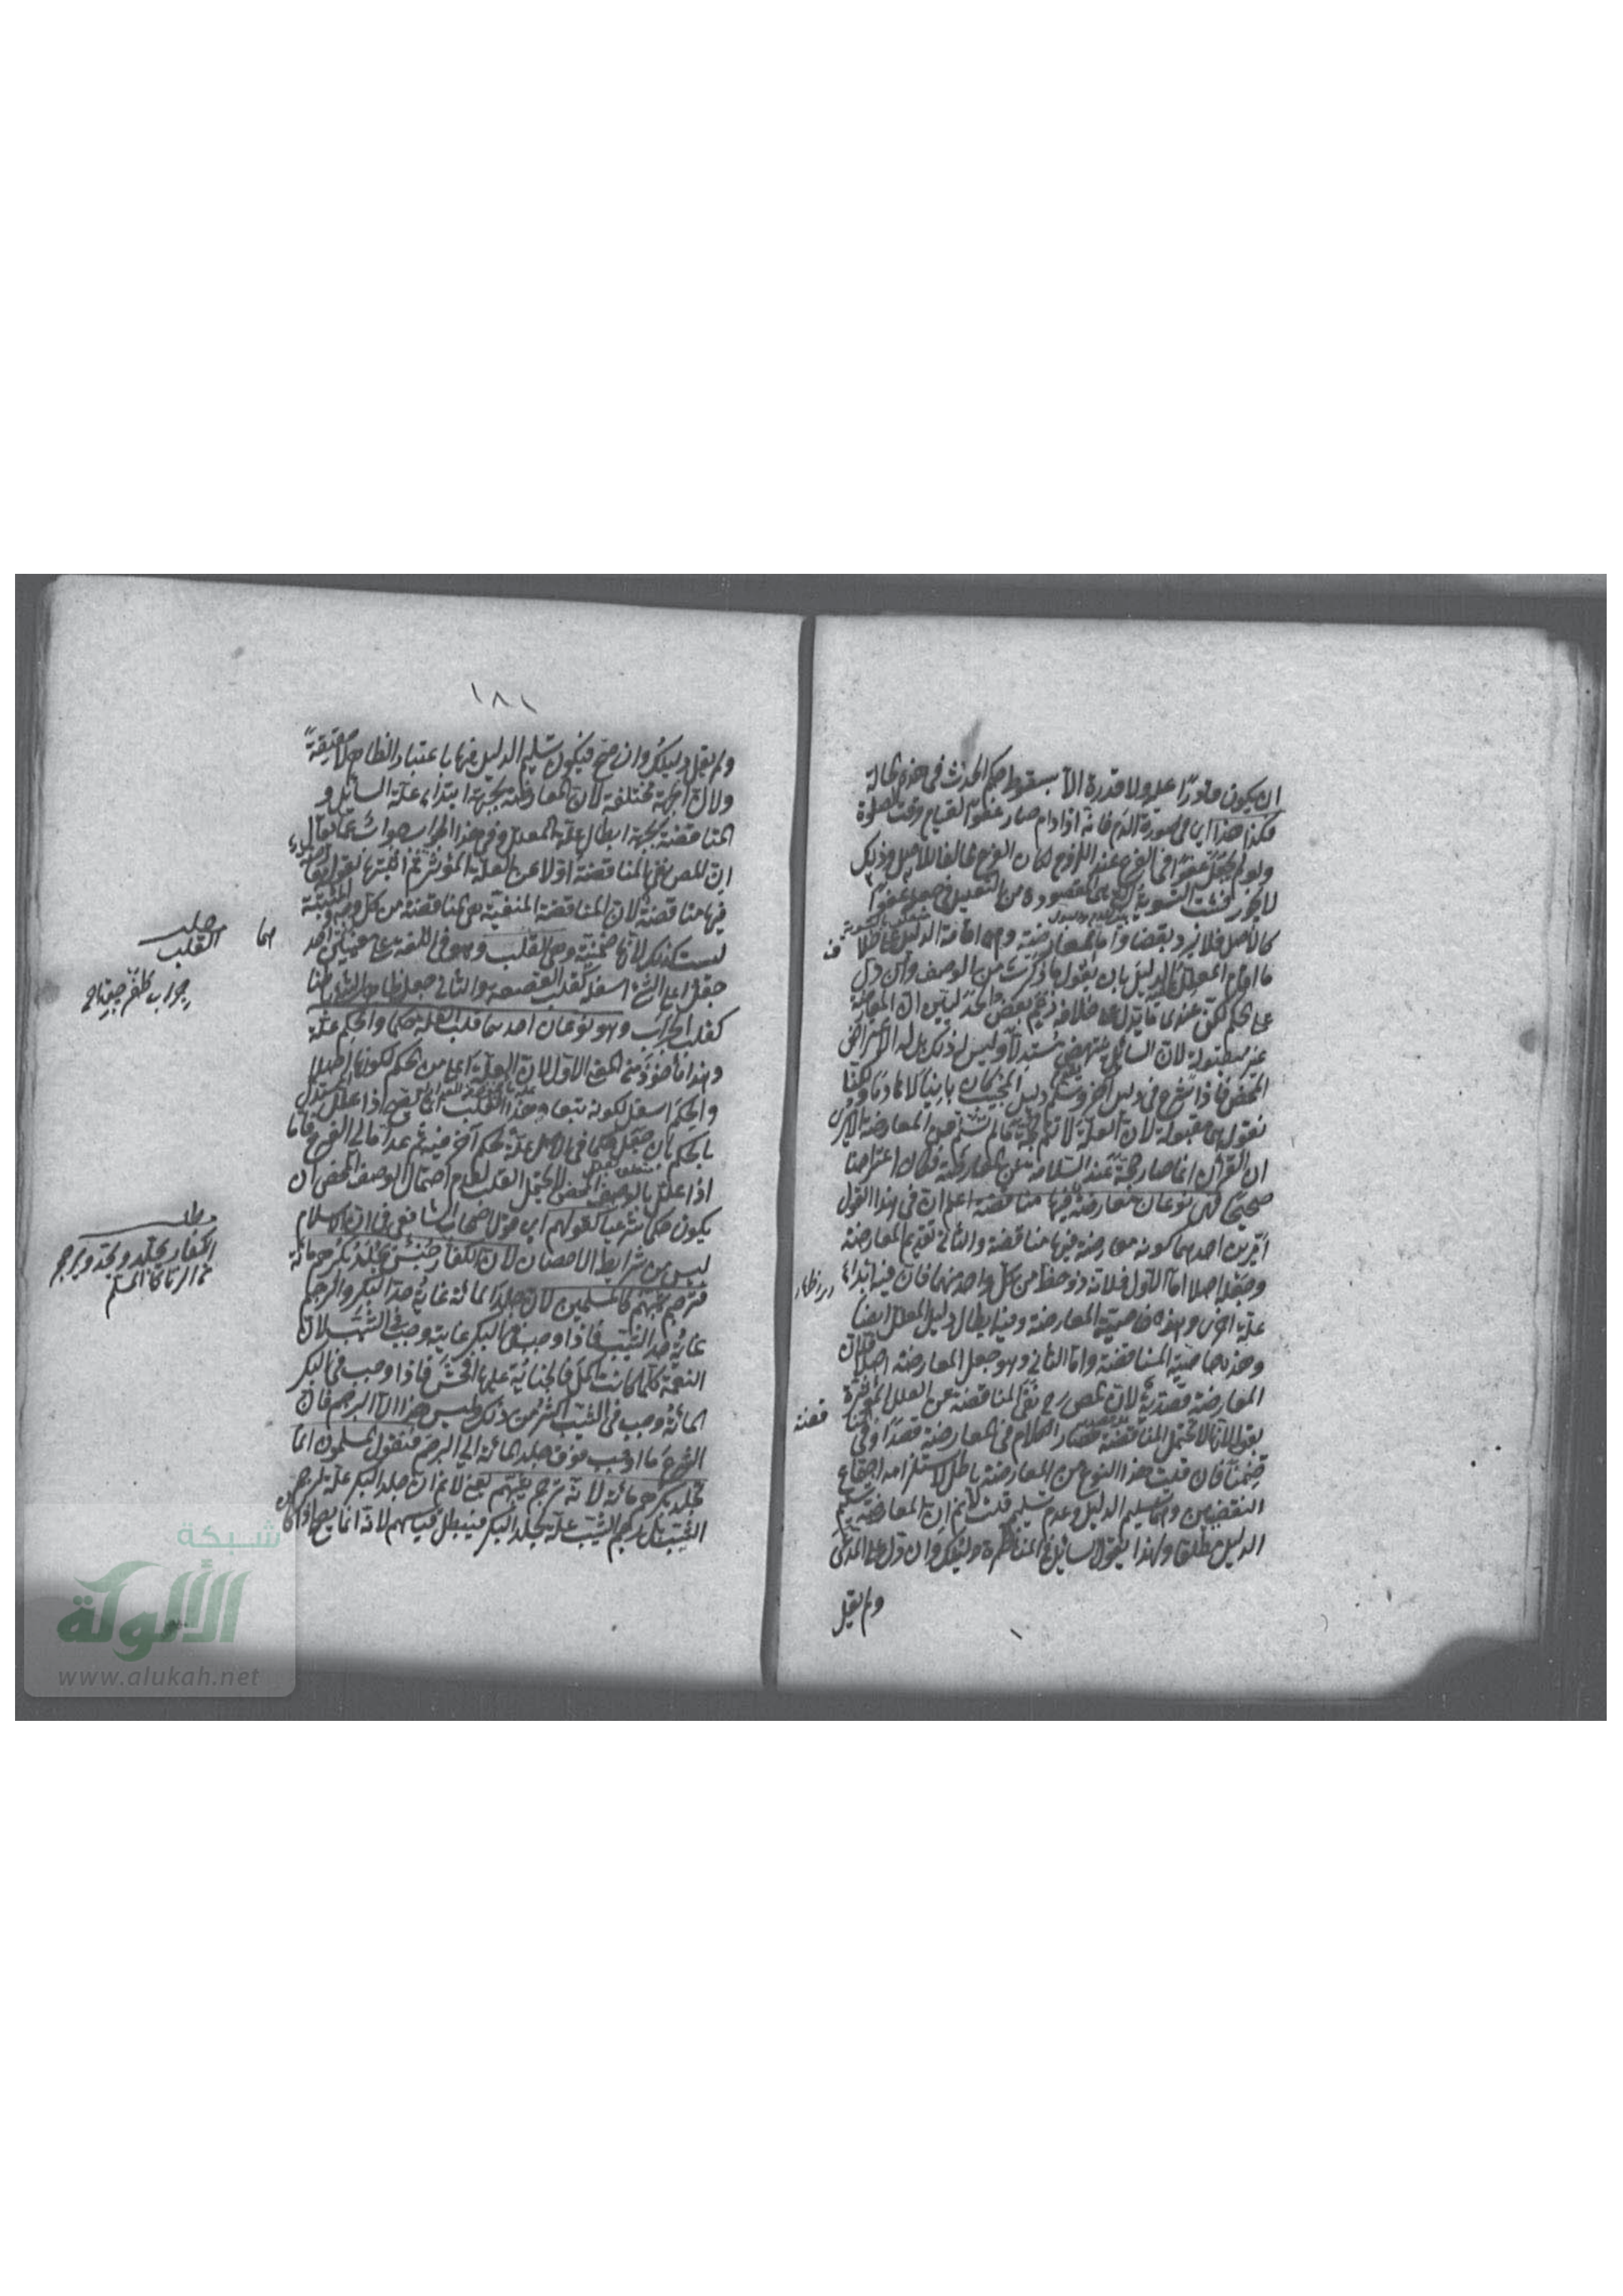 ان يكون قادرا عليه ولا قدرة الا بسقوط حكم الحدث في هذه الحالة
فكذا هذا اي في صورة الدم فانه اذا دام صار عفوا لقيام وقت الصلوة
ولو لم يجعل عفوا في الفرع عند اللزوم لكان الفرع مخالفا للاصل وذلك
لا يجوز فثبت التسوية التي هي المقصودة من التعليل في جعله عفوا
كالاصل فلا يرد نقضا واما المعارضة وهي اقامة الدليل على خلاف
ما اقام المعلل الدليل بان يقول ما ذكرت من الوصف وان دل
على الحكم لكن عندي ما يدل على خلافه زعم بعض الجدليين ان المعارضة
غير مقبولة لان السائل ينتهض مستدلا وليس له ذلك بل له الاعتراض
المحض فاذا شرع في دليل آخر دليل المجيب كان بانيا لا هادما ولكنا
نقول هي مقبولة لان العلة لا تتم حجة ما لم تسلم عن المعارضة الا يرى
ان القرآن انما صار حجة عند السلامة عن المعارضة فكان اعتراضا
صحيحا فهي نوعان معارضة فيها مناقضة اعلم ان في هذا القول
امرين احدهما كونه معارضة فيها مناقضة والثاني تقديم المعارضة
وجعله اصلا اما الاول فلانه ذو حظ من كل واحد منهما فان فيه ابداء
علة اخرى وهذه خاصية المعارضة وفيه ابطال دليل المعلل ايضا
وهذه خاصية المناقضة واما الثاني وهو جعل المعارضة اصلا فلان
المعارضة قصدية لان المص رح نفى المناقضة عن العلل المؤثرة
بقوله لانها لا تحتمل المناقضة فصار الكلام في المعارضة قصدا وفي المنا
قضة
ضمنا فان قلت هذا النوع من المعارضة باطل لاستلزامه اجتماع
النقيضين وهما تسليم الدليل وعدم تسليمه قلت لا نم ان المعارضة تسليم
الدليل مطلقا ولهذا يقول السائل في المناظرة دليلك وان دل على المدعى
ولم يقل
١٨١
ولم يقل دليلك وان صح فيكون تسليم الدليل فيها باعتبار الظاهر لا حقيقة
ولان الجهة مختلفة لان المعارضة بجهة ابتداء علة السائل و
المناقضة بجهة ابطال علة المعلل وفي هذا الجواب جواب عما يقال
ان المص نفى المناقضة اولا عن العلة المؤثرة ثم اثبتها بقوله معارضة
فيها مناقضة لان المناقضة المنفية هي مناقضة من كل وجه والمثبتة
ليست كذلك لانها ضمنية وهي القلب وهو في اللغة على معنيين احد
هما
جعل اعلى الشئ اسفله كقلب القصعة والثاني جعل ظاهر الشئ باطنا
كقلب الجراب وهو نوعان احدهما قلب العلة حكما والحكم علة
وهذا مأخوذ من المعنى الاول لان العلة اعلى من الحكم لكونها اصلا
والحكم اسفل لكونه تبعا وهذا القلب انما يصح اذا علل المستدل
بالحكم بان جعل حكما في الاصل علة لحكم آخر فيه ثم عداه الى الفرع فاما
اذا علل بالوصف المحض لا يحتمل القلب لعدم احتمال الوصف المحض ان
يكون حكما شرعيا كقولهم اي قول اصحاب الشافعي في ان الاسلام
ليس من شرايط الاحصان لان الكفار جنس يجلد بكرهم مائة
فترجم ثيبهم كالمسلمين لان جلد المائة غاية حد البكر والرجم
غاية حد الثيب فاذا وجب في البكر غايته وجب في الثيب لان
النعمة كلما كانت اكمل فالجناية عليها افحش فاذا وجب في البكر
المائة وجب في الثيب اكثر من ذلك وليس هذا الا الرجم فان
الشرع ما اوجب فوق جلد المائة الا الرجم فنقول المسلمون انما
يجلد بكرهم مائة لانه ترجم ثيبهم يعني لا نم ان جلد البكر علة لرجم
الثيب بل رجم الثيب علة لجلد البكر فيبطل قياسهم لانه انما يصح اذا كان
مطلب
القلب
مطلب
الكفار يجلد ويرجم
في الزنا كالمسلم
شبكة
الألوكة
www.alukah.net